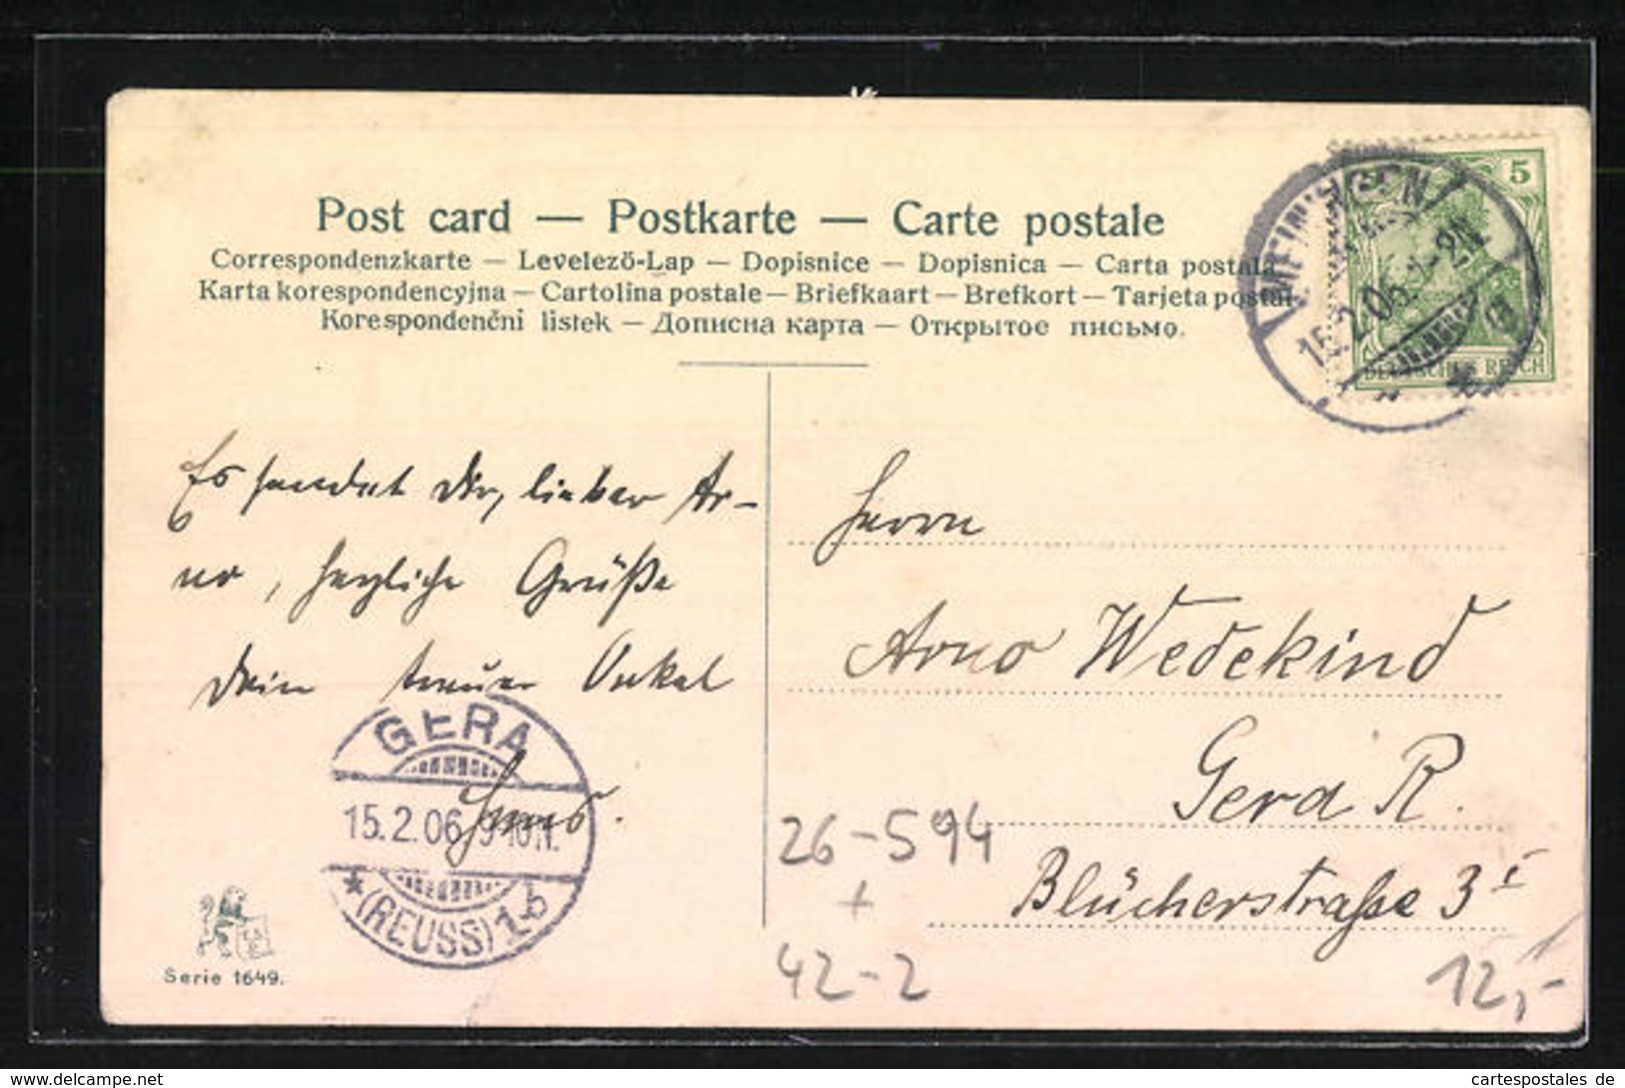 Post card — Postkarte — Carte postale
Correspondenzkarte — Levelező-Lap — Dopisnice — Dopisnica — Carta postala
Karta korespondencyjna — Cartolina postale — Briefkaart — Brefkort — Tarjeta postal
Korespondenčni listek — Дописна карта — Открытое письмо.
5
DEUTSCHES REICH
MEININGEN
15.2.06.
Es sendet Dir, lieber Ar-
no, herzliche Grüße
Dein treuer Onkel
Herrn
Arno Wedekind
Gera R.
Blücherstraße 3 I
GERA
15.2.06 9-10N.
(REUSS) 1b
26-594
+
42-2
12,-
Serie 1649.
cartespostales de
www.cartespostales.eu/all